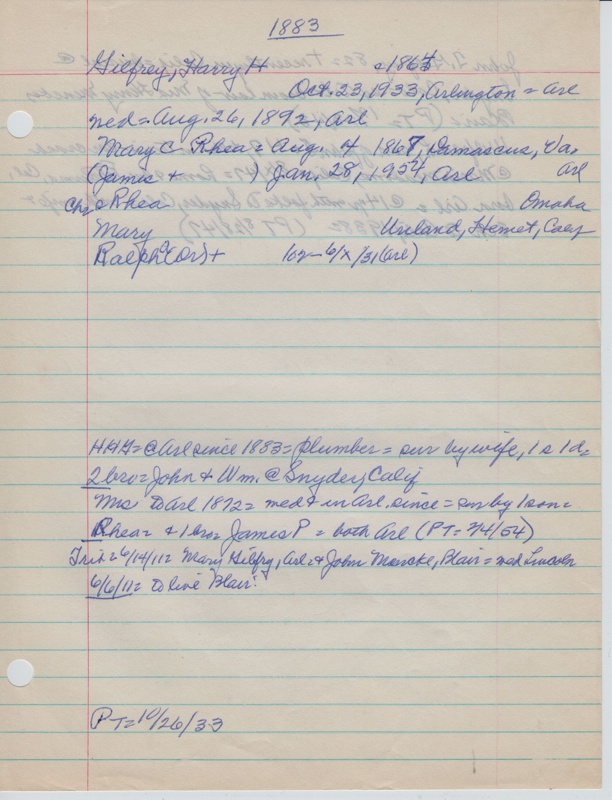 1883
Gilfrey, Harry H c1864
Oct. 23, 1933, Arlington = Arl
med = Aug. 26, 1892, Arl
Mary C Rhea = Aug. 4 1867, Damascus, Va.
(James + ) Jan. 28, 1954, Arl Arl
Ch = Rhea Omaha
Mary Ureland, Hemet, Calif
Ralph (Or) + 10m - 6/x/31 (Arl)
HHG = @ Arl since 1883 = plumber = sur by wife, 1 s 1 d =
2 bro = John & Wm. @ Snyder, Calif
Mrs to Arl 1872 = med & in Arl. since = sur by 1 son =
Rhea = & 1 bro = James P = both Arl (PT = 2/4/54)
Trib = 6/14/11 = Mary Gilfry, Arl & John Mencke, Blair = med Lincoln
6/6/11 = to live Blair.
PT = 10/26/33